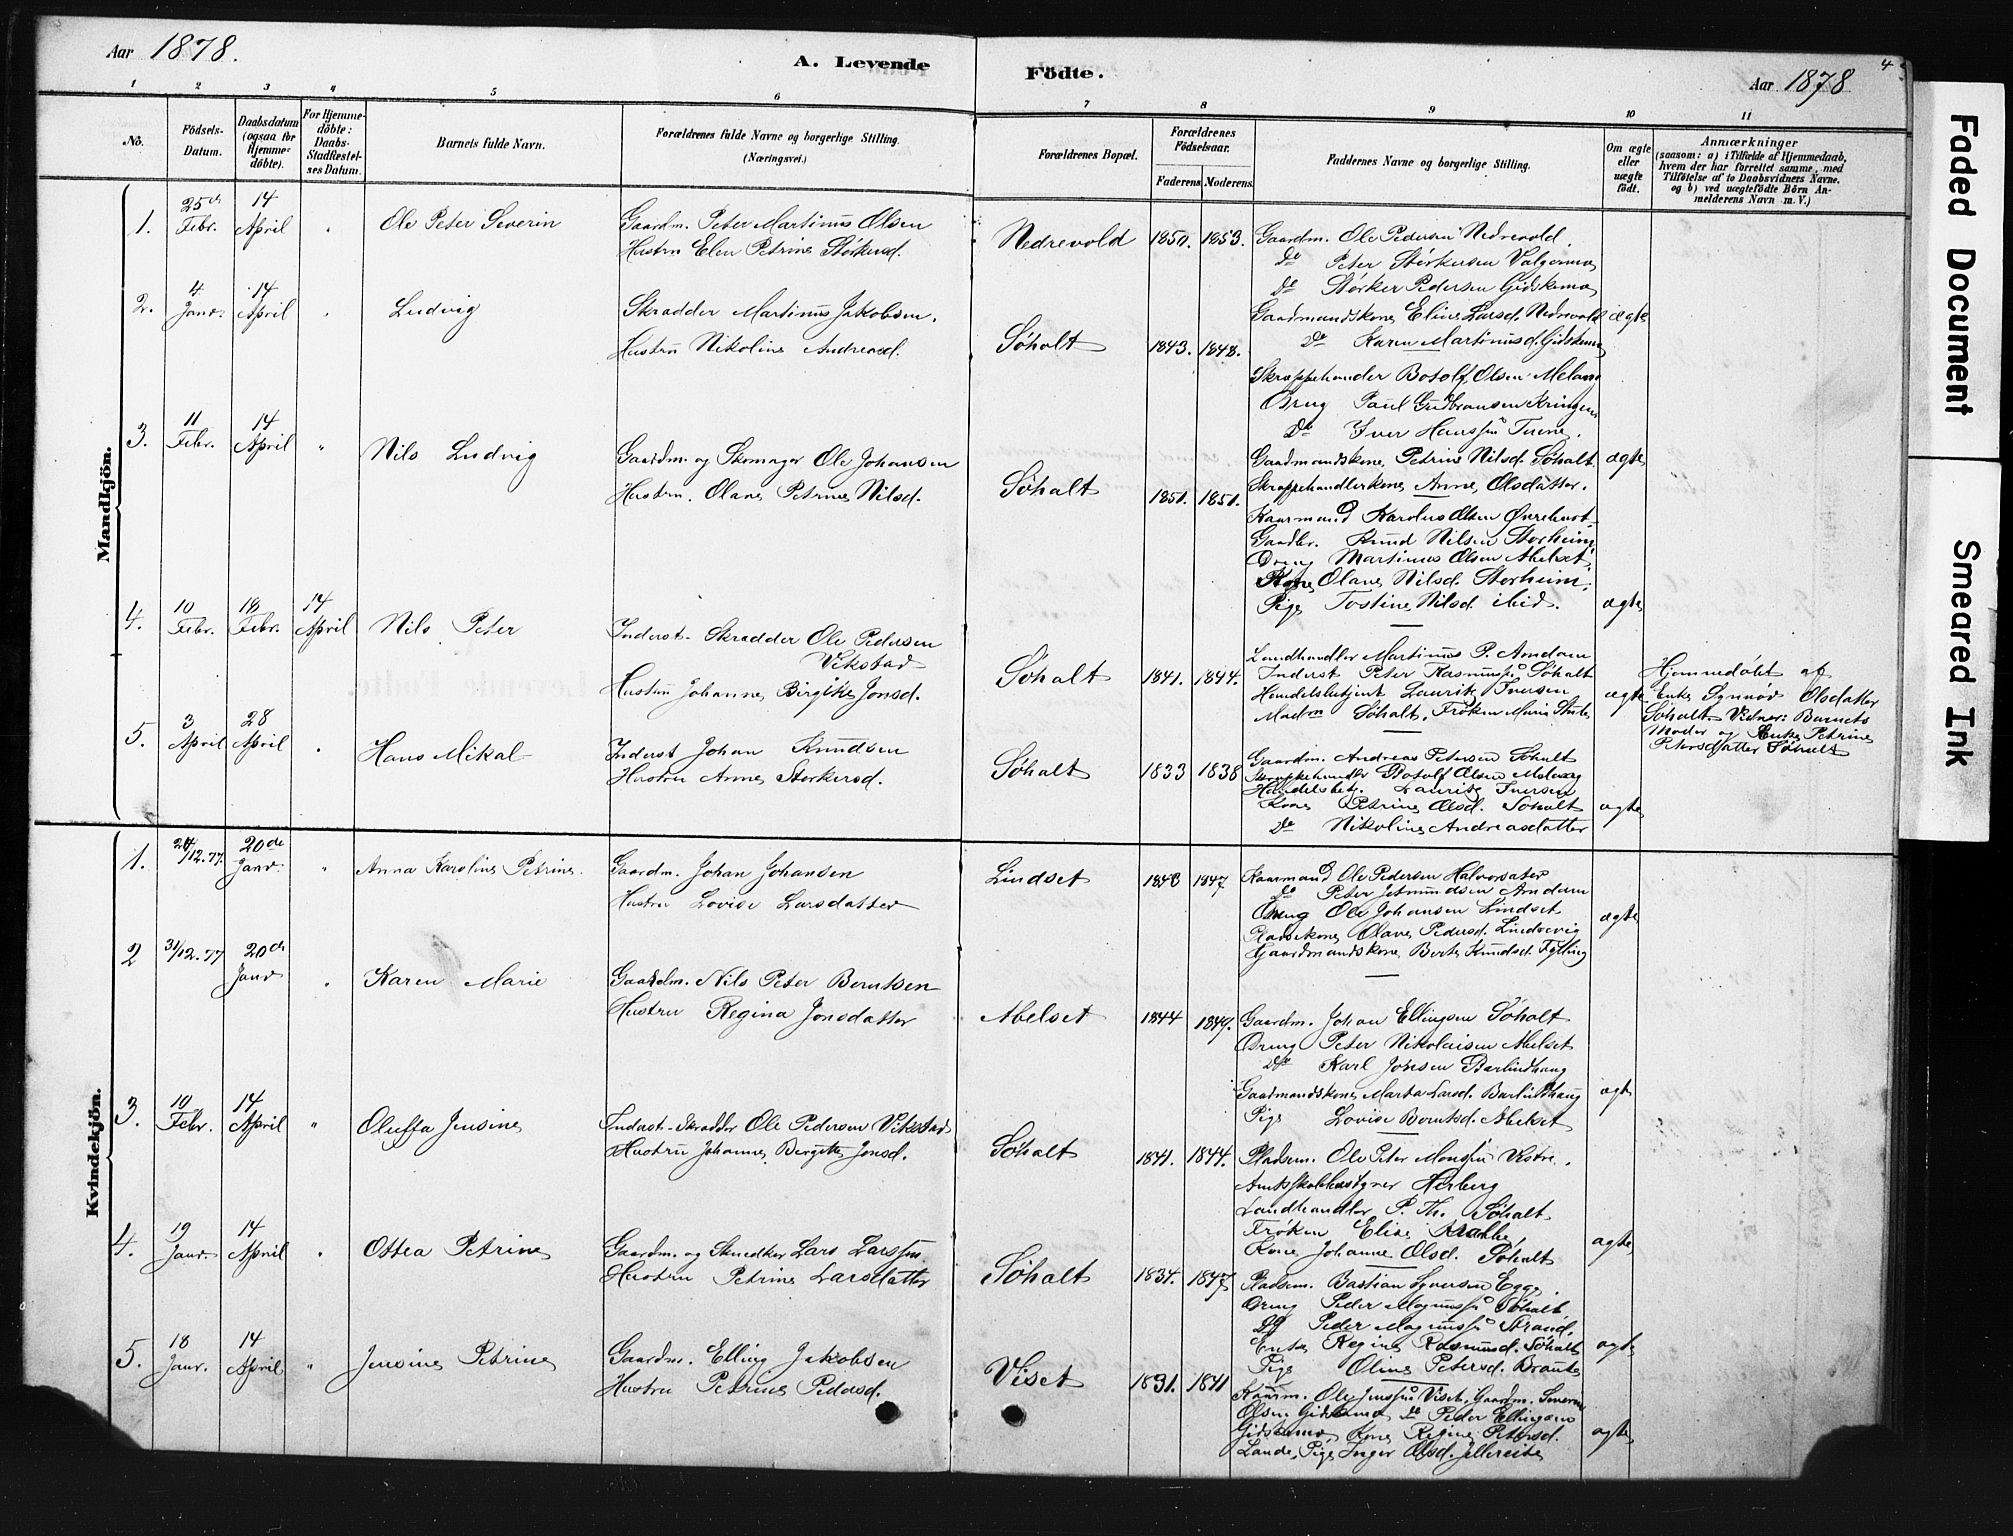 Aar 1878.
A. Levende Födte.
Aar 1878
4
1 2 3 4 5 6 7 8 9 10 11
No.
Födsels-Datum.
Daabsdatum (ogsaa for Hjemme-döbte).
For Hjemme-döbte: Daabs-Stadfæstel-ses Datum.
Barnets fulde Navn.
Forældrenes fulde Navne og borgerlige Stilling. (Næringsvei.)
Forældrenes Bopæl.
Forældrenes Födselsaar.
Faderens. Moderens.
Faddernes Navne og borgerlige Stilling.
Om ægte eller uægte födt.
Anmærkninger
(saasom: a) i Tilfælde af Hjemmedaab,
hvem der har forrettet samme, med
Tilföielse af to Daabsvidners Navne,
og b) ved uægtefödte Börn An-
melderens Navn m. V.)
Mandkjön.
1. 25de Febr. 14 April " Ole Peter Severin
Gaardm. Peter Martinus Olsen
Hustru Elen Petrine Størkersd.
Nedrevold 1850. 1853.
Gaardm. Ole Pedersen Nedrevold.
do Peter Størkersen
do Størker Pedersen Gidskemo
Gaardmandskone Eline Larsd. Nedrevold ægte
do Karen Martinusd. Gidskemo
2. 4 Janr. 14 April " Ludvig
Skrædder Martinus Jakobsen.
Hustru Nikoline Andreasd.
Søholt 1843. 1848.
Skræppehandler Botolf Olsen
Dreng Paul Gudbransen Kringen
do Iver Hanssen
Gaardmandskone Petrine Nilsd. Søholt ægte
Skræppehandlerkone Anne Olsdatter.
3. 11 Febr. 14 April " Nils Ludvig
Gaardm. og Skomager Ole Johansen
Hustru. Olane Petrine Nilsd.
Søholt 1851. 1851.
Kaarmand Karolus Olsen
Gaardbr. Knud Nilsen Storheim
Dreng Martinus Olsen Abelset
Kone Olane Nilsd. Storheim.
Pige Tostine Nilsd. ibid. ægte
4. 10 Febr. 18 Febr. 14 April Nils Peter
Inderst- Skrædder Ole Pedersen Vikstad
Hustru Johanne Birgitte Jonsd.
Søholt 1841. 1844.
Landhandler Martinus P. Amdam
Inderst Peter Rasmussen Søholt
Handelsbetjent Lauritz Iversen ægte
Madm Søholt. Frøken Marie
Hjemmedøbt af
Enke Synnøv Olsdatter
Søholt. Vidner: Barnets
Moder og Enke Petrine
Petersdatter Søholt
5. 3 April 28 April " Hans Mikal
Inderst Johan Knudsen
Hustru Anne Størkersd.
Søholt 1833 1838
Gaardm. Andreas Petersen Søholt
Skræppehandler Botolf Olsen
Handelsbetj. Lauritz Iversen
Kone Petrine Olsd. Søholt ægte
do Nikoline Andreasdatter
Kvindekjön.
1. 24/12.77 20de Janr. " Anna Karoline Petrine.
Gaardm. Johan Johansen
Hustru Lovise Larsdatter
Lindset 1848 1847
Kaarmand Ole Pedersen Halvorsæter
do Peter Amdam
Dreng Ole Johansen Lindset ægte
Pladsekone Olave Pedersd. Lindsevig
Gaardmandskone Berte Knudsd. Fylling
2 31/12.77 20de Janr " Karen Marie
Gaardm. Nils Peter Berntsen
Hustru Regina Jonsdatter
Abelset 1844 1849.
Gaardm. Johan Ellingsen Søholt
Dreng Peter Nikolaisen Abelset
do Karl Jonsen Barlindhaug
Gaardmandskone Marta Larsd. Barlindhaug ægte
Pige Lovise Berntsd. Abelset
3. 10 Febr. 14 April " Oluffa Jensine
Inderst-Skrædder Ole Pedersen Vikstad
Hustru Johanne Birgitte Jonsd.
Søholt 1841. 1844.
Pladsem. Ole Peter Monssen Vestre.
Herberg
Landhandler P. Th. Søholt
Frøken Elise
Kone Johanne Olsd. Søholt ægte
4. 19 Janr. 14 April " Ottea Petrine
Gaardm. og Snedker Lars Larssen
Hustru Petrine Larsdatter
Søholt 1834. 1847
Pladsem. Bastian Syversen Egge.
Dreng Peder Magnussen Søholt
do Peder Magnussen Strand.
Enke Regine Rasmusd. Søholt ægte
Pige Oline Petersd. Braute
5. 18 Janr. 14 April " Jensine Petrine
Gaardm. Elling Jakobsen
Hustru Petrine Pedersd.
Viset 1831. 1841
Kaarm. Ole Jenssen Viset, Gaardm. Severin
Olsen Gidskemo do Peder Ellingsen
Gidskemo, Kone Regine Petersd. ægte
Lande, Pige Inger Olsd.
Faded Document
Smeared Ink